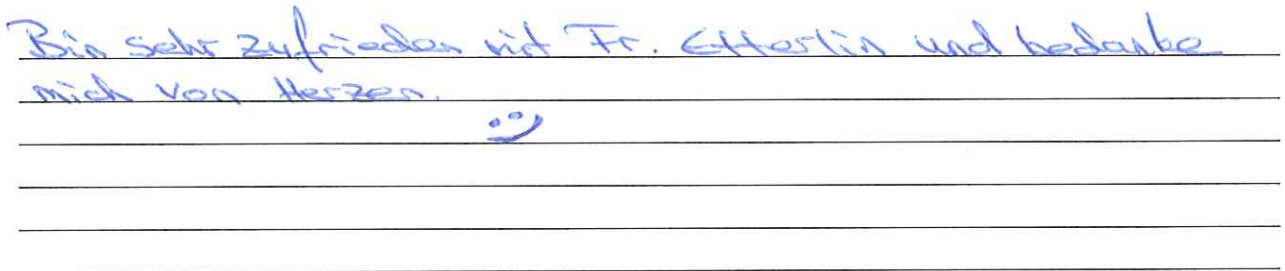 Bin sehr zufrieden mit Fr. Etterlin und bedanke
mich von Herzen.
:)